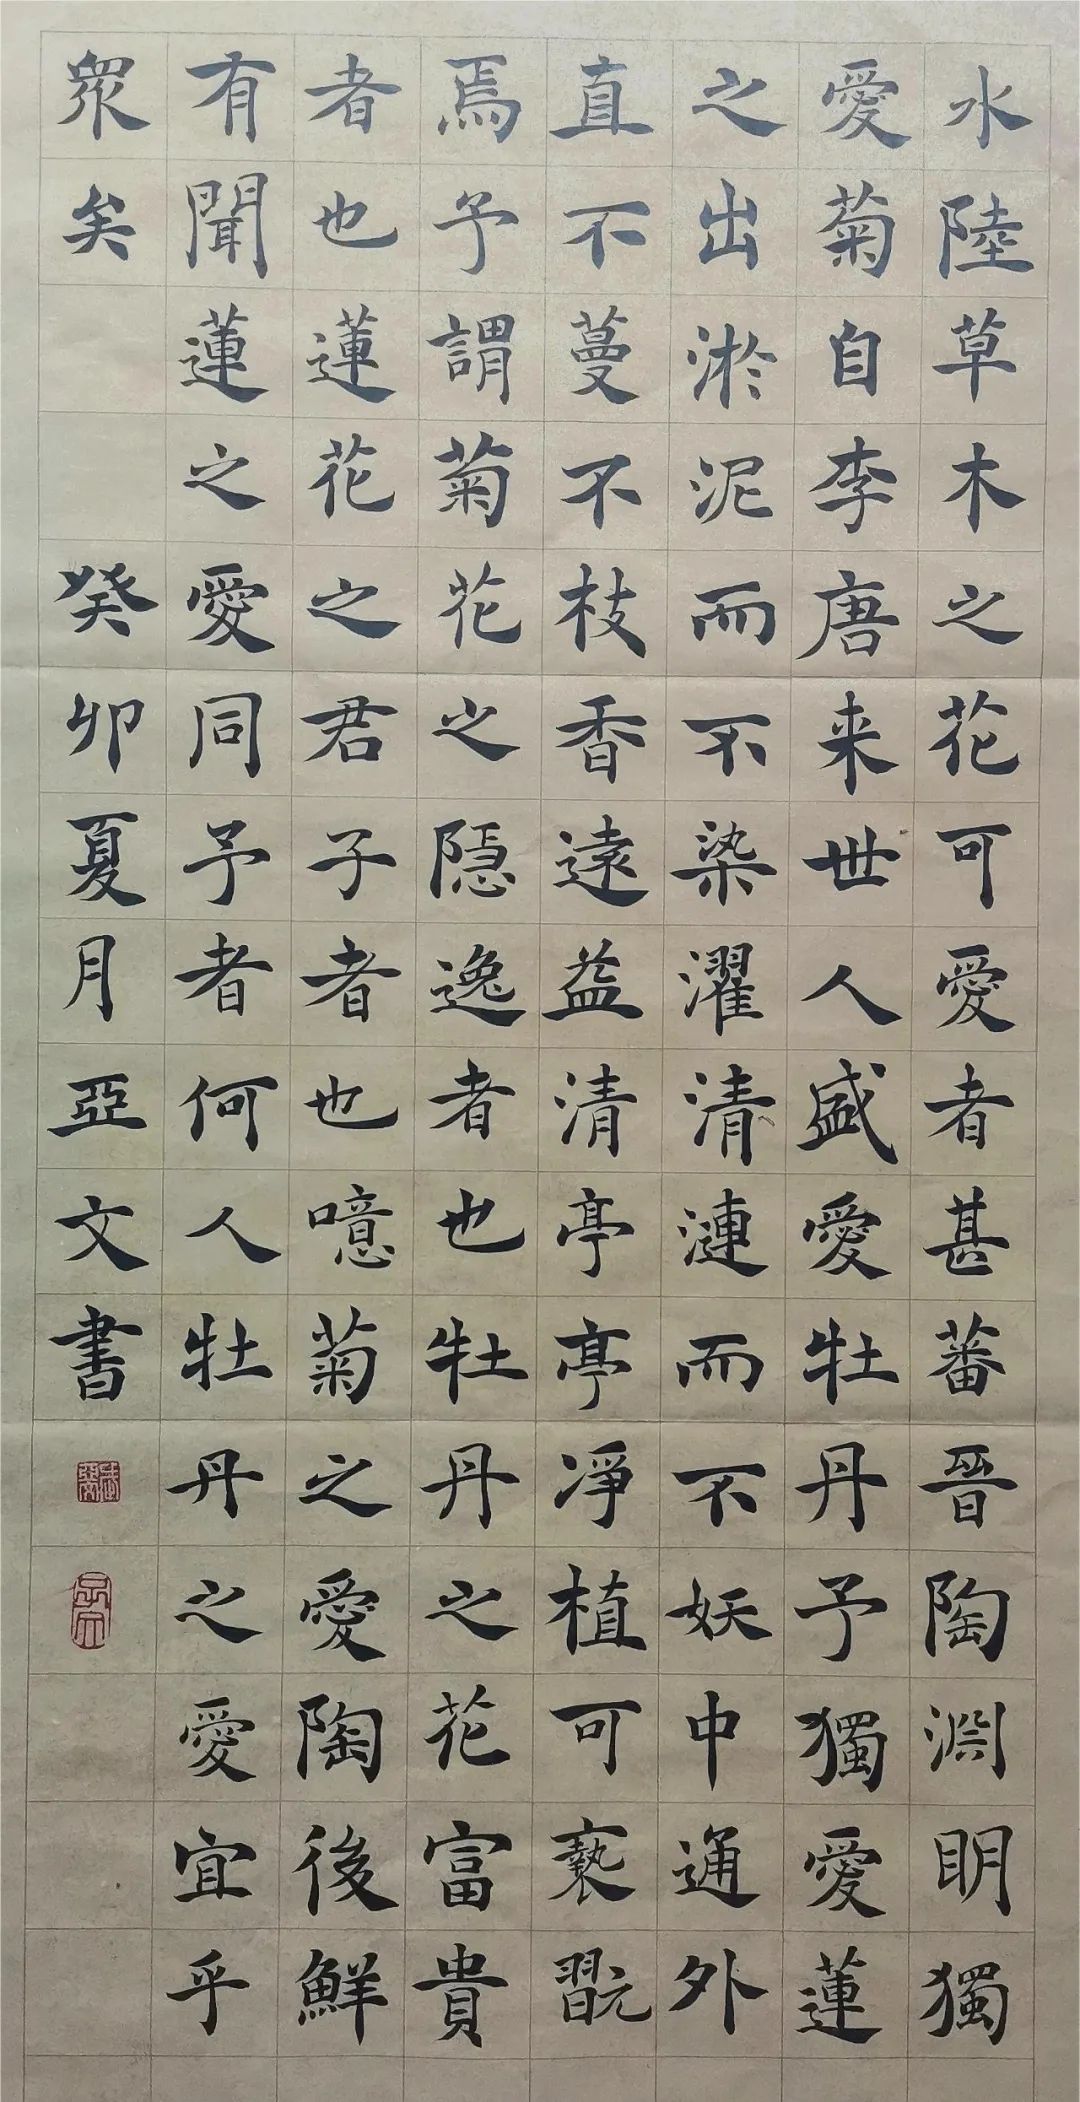 水陸草木之花可愛者甚蕃晉陶淵明獨
愛菊自李唐来世人盛愛牡丹予獨愛蓮
之出淤泥而不染濯清漣而不妖中通外
直不蔓不枝香遠益清亭亭凈植可褻翫
焉予謂菊花之隱逸者也牡丹之花富貴
者也蓮花之君子者也噫菊之愛陶後鮮
有聞蓮之愛同予者何人牡丹之愛宜乎
眾矣 癸卯夏月亞文書